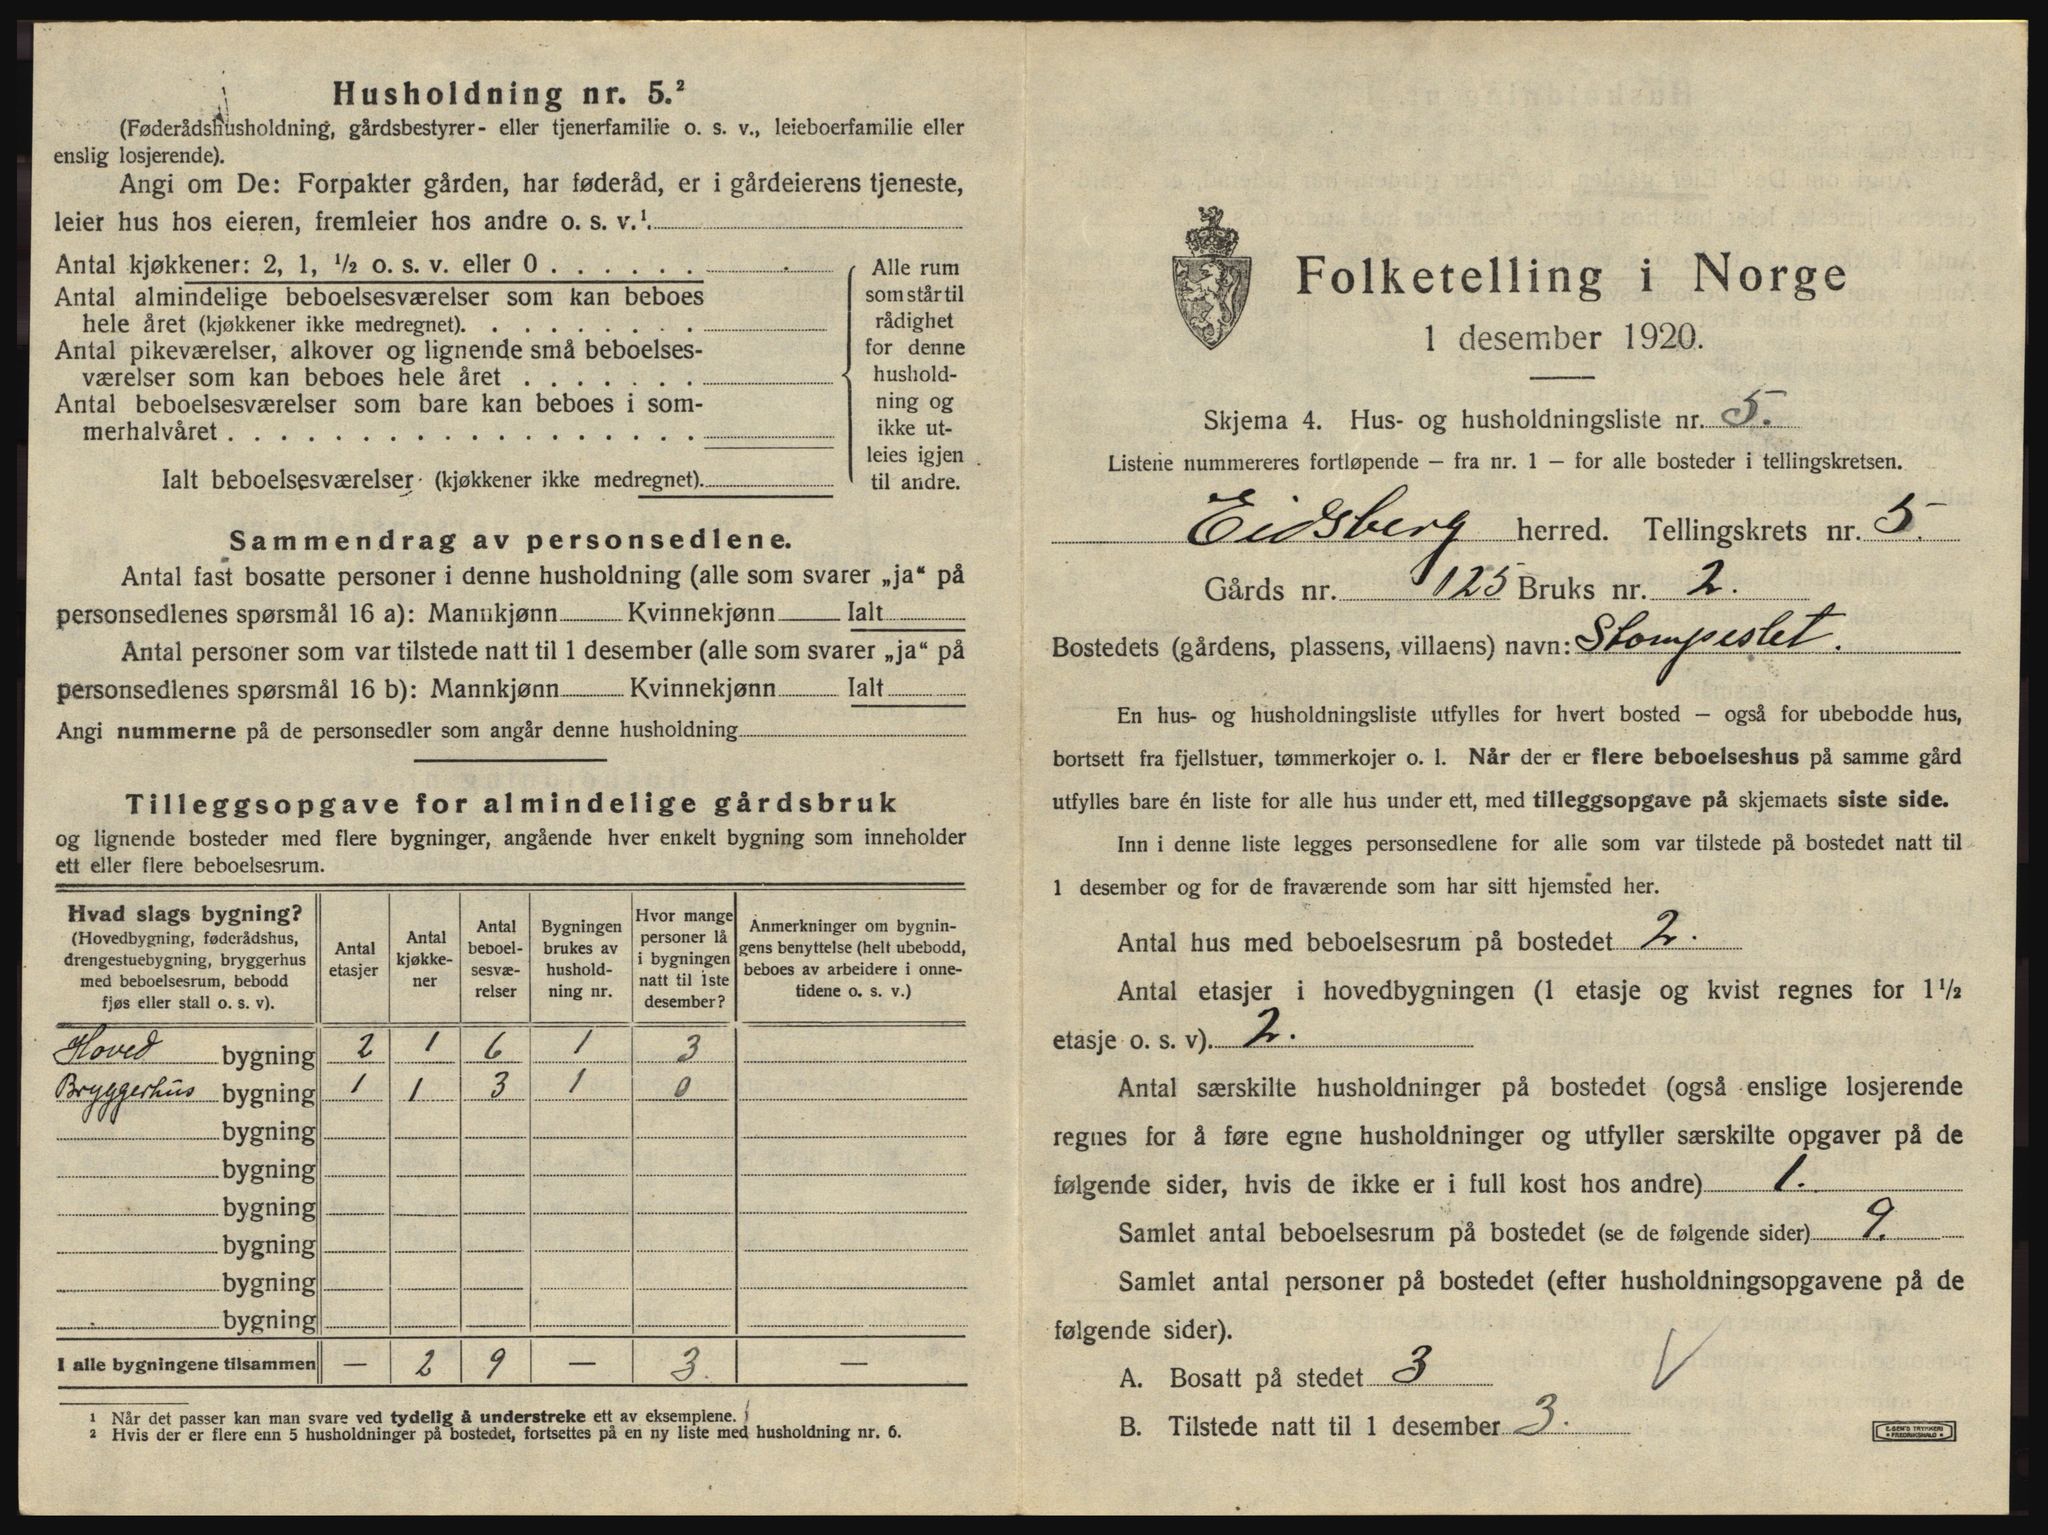 Husholdning nr. 5.²
(Føderådshusholdning, gårdsbestyrer- eller tjenerfamilie o. s. v., leieboerfamilie eller
enslig losjerende).
Angi om De: Forpakter gården, har føderåd, er i gårdeierens tjeneste,
leier hus hos eieren, fremleier hos andre o. s. v.¹.
Antal kjøkkener: 2, 1, ½ o. s. v. eller 0 . . . . . .
Antal almindelige beboelsesværelser som kan beboes
hele året (kjøkkener ikke medregnet). . . . . . . . .
Antal pikeværelser, alkover og lignende små beboelses-
værelser som kan beboes hele året . . . . . . .
Antal beboelsesværelser som bare kan beboes i som-
merhalvåret . . . . . . . . . . . . . . . . . .
Ialt beboelsesværelser (kjøkkener ikke medregnet).
Alle rum
som står til
rådighet
for denne
hushold-
ning og
ikke ut-
leies igjen
til andre.
Sammendrag av personsedlene.
Antal fast bosatte personer i denne husholdning (alle som svarer „ja“ på
personsedlenes spørsmål 16 a): Mannkjønn Kvinnekjønn Ialt
Antal personer som var tilstede natt til 1 desember (alle som svarer „ja“ på
personsedlenes spørsmål 16 b): Mannkjønn Kvinnekjønn Ialt
Angi nummerne på de personsedler som angår denne husholdning
Tilleggsopgave for almindelige gårdsbruk
og lignende bosteder med flere bygninger, angående hver enkelt bygning som inneholder
ett eller flere beboelsesrum.
Hvad slags bygning?
(Hovedbygning, føderådshus,
drengestuebygning, bryggerhus
med beboelsesrum, bebodd
fjøs eller stall o. s. v).
Antal
etasjer
Antal
kjøkke-
ner
Antal
beboel-
sesvæ-
relser
Bygningen
brukes av
hushold-
ning nr.
Hvor mange
personer lå
i bygningen
natt til 1ste
desember?
Anmerkninger om bygnin-
gens benyttelse (helt ubebodd,
beboes av arbeidere i onne-
tidene o. s. v.)
Hoved bygning 2 1 6 1 3
Bryggerhus bygning 1 1 3 1 0
bygning
bygning
bygning
bygning
bygning
bygning
I alle bygningene tilsammen — 2 9 — 3. —
¹ Når det passer kan man svare ved tydelig å understreke ett av eksemplene.
² Hvis der er flere enn 5 husholdninger på bostedet, fortsettes på en ny liste med husholdning nr. 6.
Folketelling i Norge
1 desember 1920.
Skjema 4. Hus- og husholdningsliste nr. 5.
Listene nummereres fortløpende – fra nr. 1 – for alle bosteder i tellingskretsen.
Eidsberg herred. Tellingskrets nr. 5.
Gårds nr. 125 Bruks nr. 2.
Bostedets (gårdens, plassens, villaens) navn: Stompeslet.
En hus- og husholdningsliste utfylles for hvert bosted – også for ubebodde hus,
bortsett fra fjellstuer, tømmerkojer o. l. Når der er flere beboelseshus på samme gård
utfylles bare én liste for alle hus under ett, med tilleggsopgave på skjemaets siste side.
Inn i denne liste legges personsedlene for alle som var tilstede på bostedet natt til
1 desember og for de fraværende som har sitt hjemsted her.
Antal hus med beboelsesrum på bostedet 2.
Antal etasjer i hovedbygningen (1 etasje og kvist regnes for 1½
etasje o. s. v). 2.
Antal særskilte husholdninger på bostedet (også enslige losjerende
regnes for å føre egne husholdninger og utfyller særskilte opgaver på de
følgende sider, hvis de ikke er i full kost hos andre) 1.
Samlet antal beboelsesrum på bostedet (se de følgende sider) 9.
Samlet antal personer på bostedet (efter husholdningsopgavene på de
følgende sider).
A. Bosatt på stedet 3
B. Tilstede natt til 1 desember 3.
E. SEM'S TRYKKERI
FREDRIKSHALD